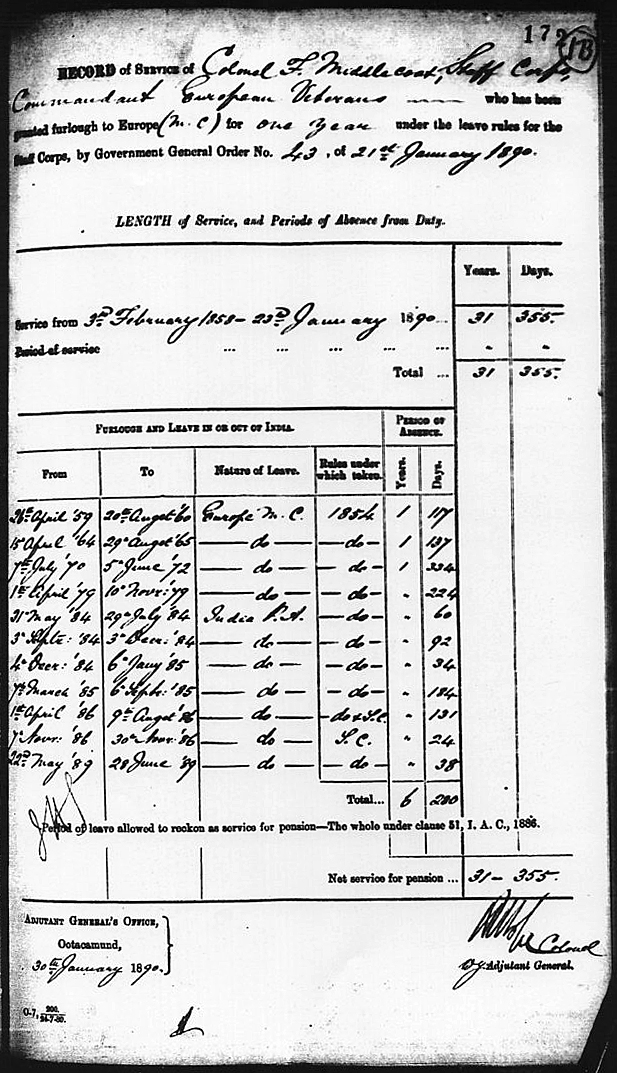 172
1B
RECORD of SERVICE of Colonel F. Middlecoat, Staff Corps,
Commandant European Veterans — who has been
granted furlough to Europe (m. c) for one year under the leave rules for the
Staff Corps, by Government General Order No. 43, of 21st January 1890.
LENGTH of Service, and Periods of Absence from Duty.
Years. Days.
Service from 3rd February 1858 - 23rd January 1890... 31 355.
Period of service ... ... ... ... ... " "
Total ... 31 355.
FURLOUGH AND LEAVE IN OR OUT OF INDIA. PERIOD OF ABSENCE.
From To Nature of Leave. Rules under which taken. Years. Days.
26th April '59 20th Augst '60 Europe M. C. 1854 1 117
15 April '64 29th Augst '65 — do — — do — 1 137
7th July '70 5th June '72 — do — — do — 1 334
1st April '79 10th Novr: '79 — do — — do — " 224
31st May '84 29th July '84 India P. A. — do — " 60
3rd Septr: '84 3rd Decr: '84 — do — — do — " 92
4th Decr: '84 6th Jany '85 — do — — do — " 34
7th March '85 6th Septr: '85 — do — — do — " 184
1st April '86 9th Augst '86 — do — — do & S.C. " 131
7th Novr: '86 30th Novr: '86 — do — S. C. " 24
22nd May '89 28 June '89 — do — — do — " 38
Total... 6 280
Period of leave allowed to reckon as service for pension—The whole under clause 51, I. A. C., 1886.
Net service for pension ... 31 - 355.
ADJUTANT GENERAL'S OFFICE,
Ootacamund,
30th January 1890.
Colonel
Dy. Adjutant General.
O-7, 200/24-7-80.